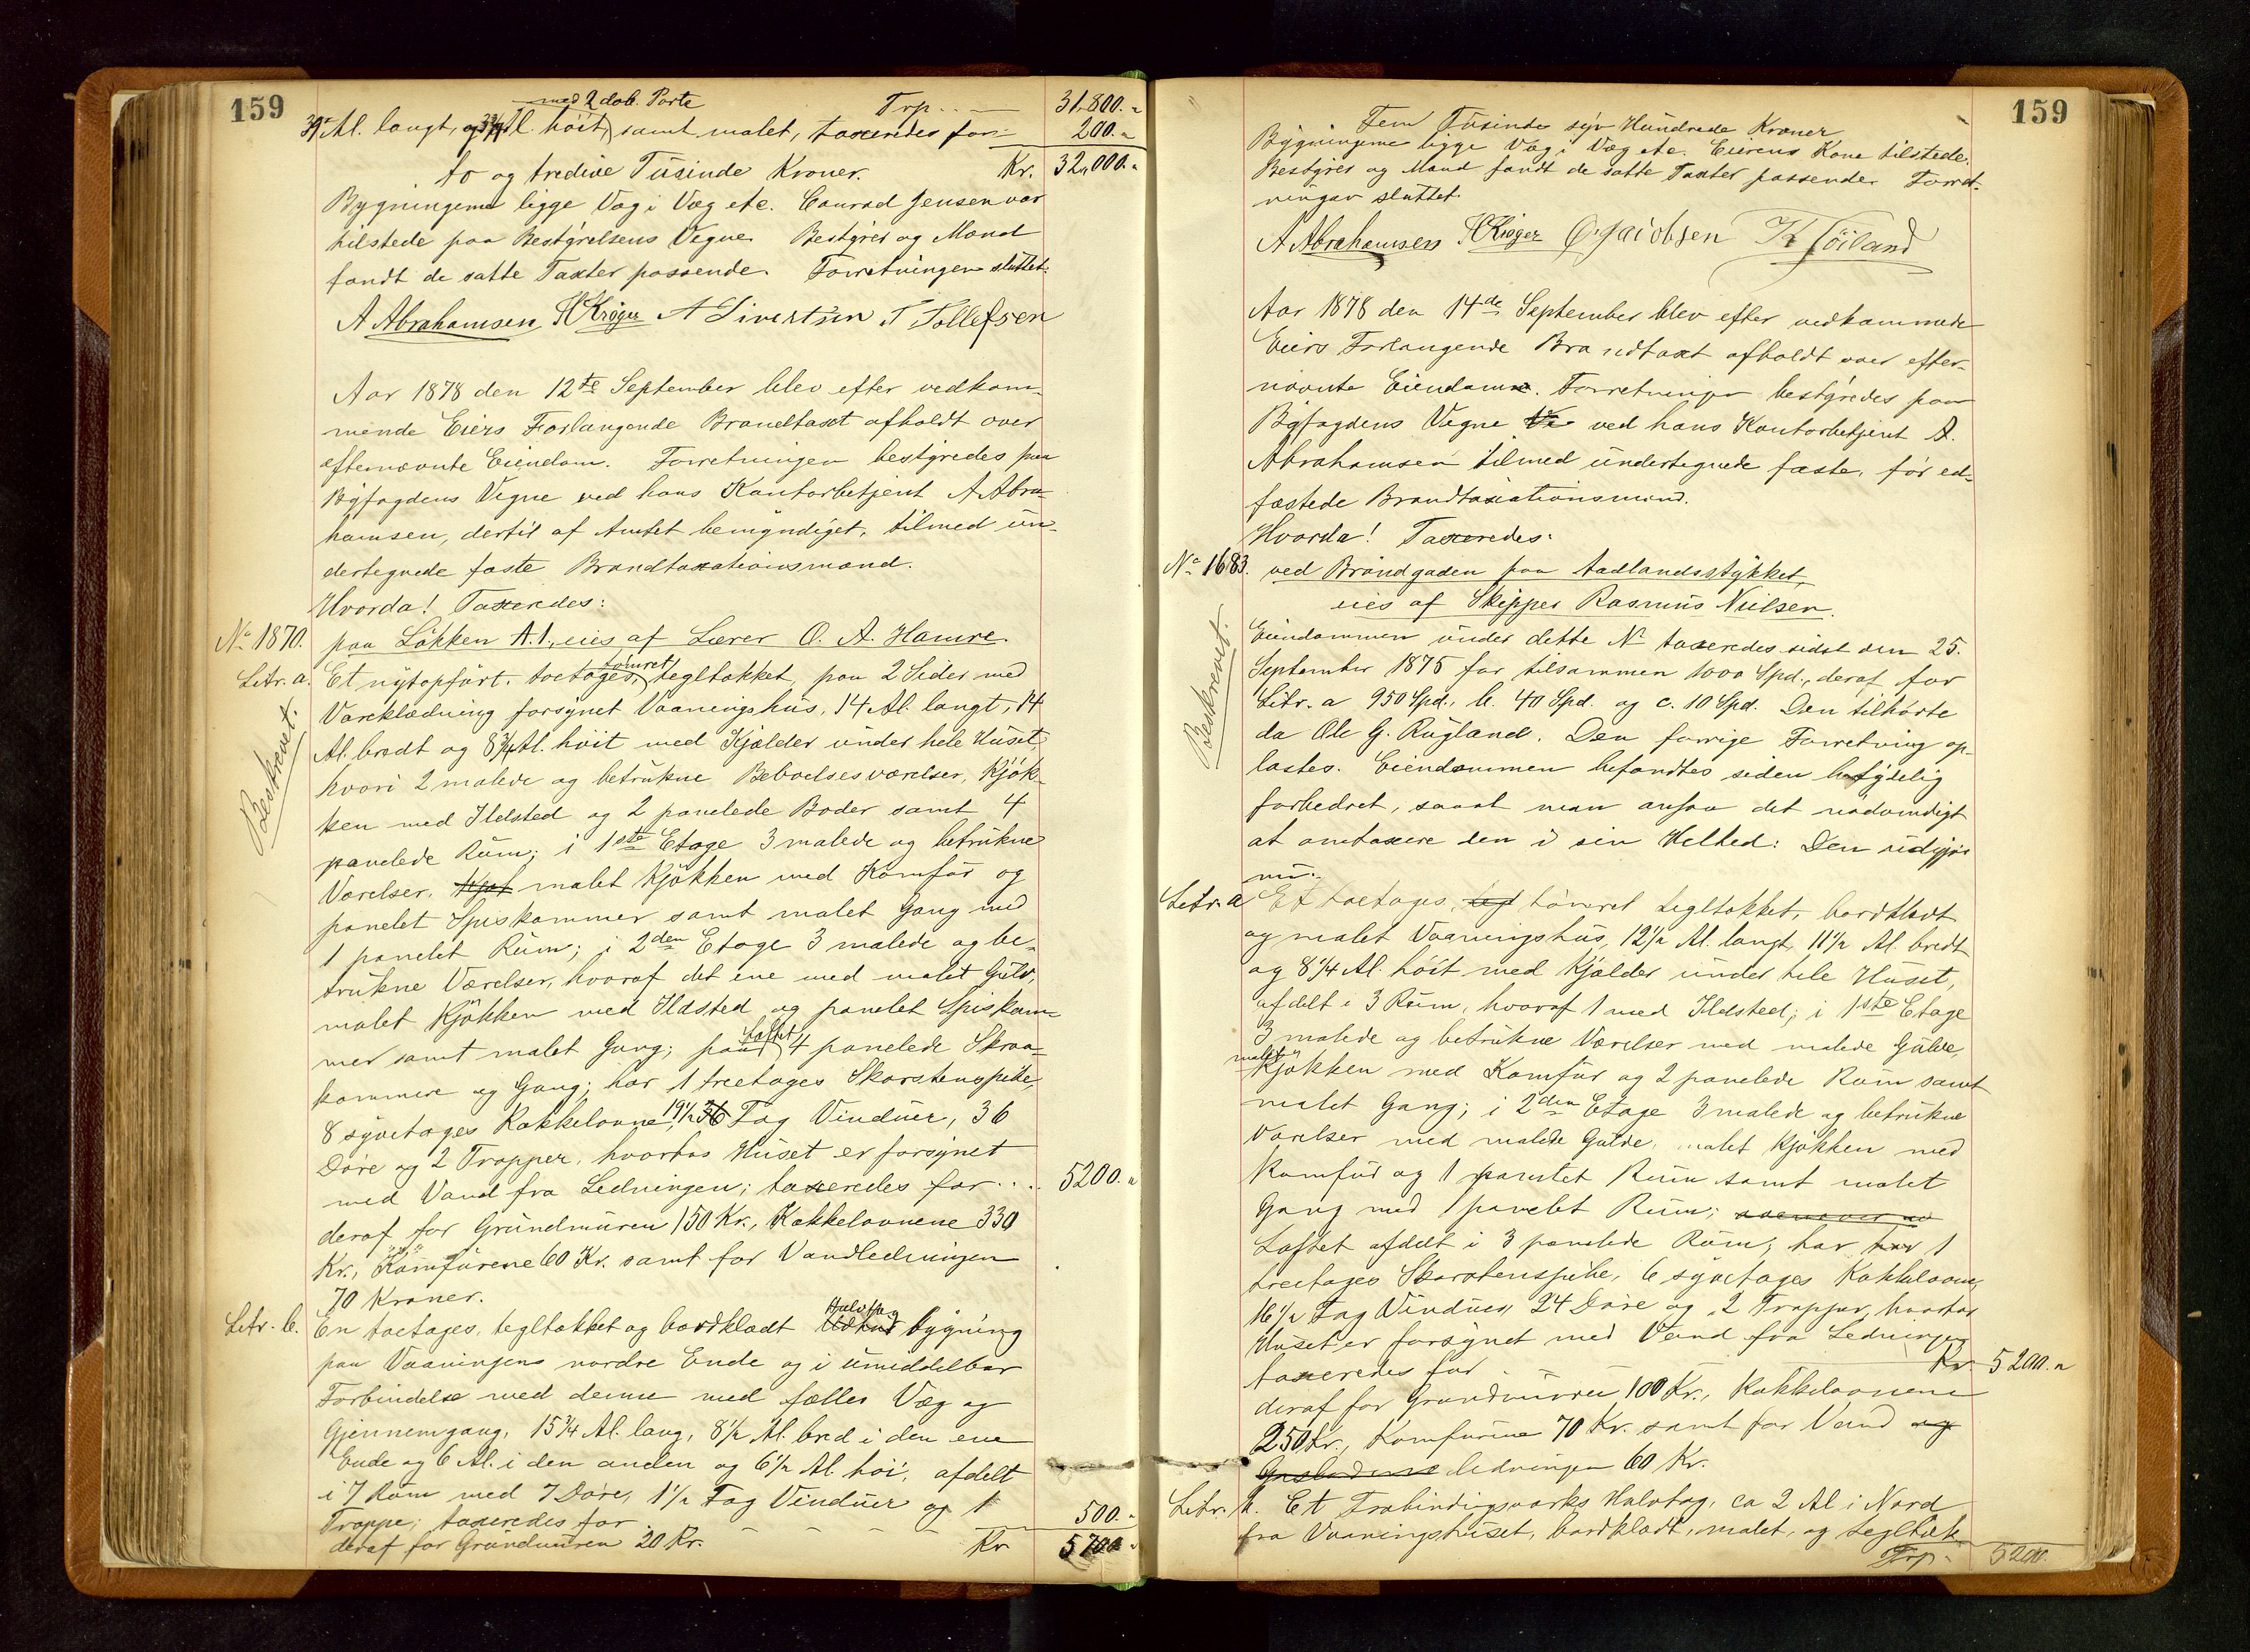 159
med 2 dob. Porte Trp. 31,800.
Al. langt, og Al. höit, samt malet, taxeredes for 200.
to og tredive Tusinde Kroner. Kr. 32,000.
Bygningerne ligge Væg i Væg etc. Conrad Jensen var
tilstede paa Bestyrelsens Vegne. Bestyrer og Mænd
fandt de satte Taxter passende. Forretningen sluttet.
A Abrahamsen H Kröger A Sivertsen T Tollefsen
Aar 1878 den 12te September blev efter vedkom-
mende Eiers Forlangende Brandtaxt afholdt over
efternævnte Eiendom. Forretningen bestyredes paa
Byfogdens Vegne ved hans Kontorbetjent A Abra-
hamsen, dertil af Amtet bemyndiget, tilmed un-
dertegnede faste Brandtaxationsmænd.
Hvorda! Taxeredes:
No 1870. paa Lökken A.1, eies af Lærer O. A. Hamre.
Beskrevet.
Litr. a. Et nytopfört, toetages, tömret, tegltækket, paa 2 Sider med
Vareklædning forsynet Vaaningshus, 14 Al. langt, 14
Al. bredt og 8 3/4 Al. höit med Kjælder under hele Huset,
hvori 2 malede og betrukne Beboelsesværelser, Kjök-
ken med Ildsted og 2 panelede Boder samt 4
panelede Rum; i 1ste Etage 3 malede og betrukne
Værelser, Kjøk malet Kjökken med Komfür og
panelet Spiskammer samt malet Gang med
1 panelet Rum; i 2den Etage 3 malede og be-
trukne Værelser, hvoraf det ene med malet Gulv,
malet Kjökken med Ildsted og panelet Spiskam-
mer samt malet Gang; paa Loftet 4 panelede Skraa-
kammere og Gang; har 1 treetages Skorstenspibe,
8 syvetages Kakkelovne, 19 1/2 36 Fag Vinduer, 36
Döre og 2 Trapper, hvorhos Huset er forsynet
med Vand fra Ledningen; taxeredes for ... 5200.
deraf for Grundmuren 150 Kr., Kakkelovnene 330
Kr., Komfürene 60 Kr. samt for Vandledningen
70 Kroner.
Litr. b. En toetages, tegltækket og bordklædt Udhus Halvtag bygning
paa Vaaningens nordre Ende og i umiddelbar
Forbindelse med denne med fælles Væg og
Gjennemgang, 15 3/4 Al. lang, 8 1/2 Al. bred i den ene
Ende og 6 Al. i den anden og 6 1/2 Al. höi, afdelt
i 7 Rum med 7 Döre, 1 1/2 Fag Vinduer og 1
Trappe; taxeredes for 500.
deraf for Grundmuren 20 Kr. Kr 5700
159
Fem Tusinde syv Hundrede Kroner
Bygningerne ligge Væg i Væg etc. Eierens Kone tilstede.
Bestyrer og Mænd fandt de satte Taxter passende. Forret-
ningen sluttet.
A Abrahamsen H Kröger O. Jacobsen
Aar 1878 den 14de September blev efter vedkommende
Eiers Forlangende Brandtaxt afholdt over efter-
nævnte Eiendom. Forretningen bestyredes paa
Byfogdens Vegne ved hans Kontorbetjent A.
Abrahamsen tilmed undertegnede faste, för ed-
fæstede Brandtaxationsmænd.
Hvorda! Taxeredes:
No 1683. ved Brandgaden paa Aadlandsstykket,
eies af Skipper Rasmus Nielsen.
Beskrevet.
Eiendommen under dette No taxeredes sidst den 25.
September 1875 for tilsammen 1000 Spd., deraf for
Litr. a 950 Spd., b. 40 Spd. og c. 10 Spd. Den tilhörte
da Ole G. Rugland. Den forrige Forretning op-
læstes. Eiendommen befandtes siden betydelig
forbedret, saaat man ansaa det nødvendigt
at omtaxere den i sin Helhed: Den udgjör
nu:
Litr. a Et toetages, tegl tömret tegltækket, bordklædt
og malet Vaaningshus, 12 1/2 Al. langt, 11 1/2 Al. bredt
og 8 1/4 Al. höit med Kjælder under hele Huset,
afdelt i 3 Rum, hvoraf 1 med Ildsted; i 1ste Etage
3 malede og betrukne Værelser med malede Gulve,
malet Kjökken med Komfür og 2 panelede Rum samt
malet Gang; i 2den Etage 3 malede og betrukne
Værelser med malede Gulve, malet Kjökken med
Komfür og 1 panelet Rum samt malet
Gang med 1 panelet Rum;
Loftet afdelt i 3 panelede Rum; har har 1
treetages Skorstenspibe, 6 syvetages Kakkelovne,
16 1/2 Fag Vinduer, 24 Döre og 2 Trapper, hvorhos
Huset er forsynet med Vand fra Ledningen
taxeredes for Kr. 5200.
deraf for Grundmuren 100 Kr., Kakkelovnene
250 Kr., Komfurene 70 Kr. samt for Vand og
ledningen 60 Kr.
Litr. b. Et Fra Bindingsværks Halvtag, ca 2 Al. i Nord
fra Vaaningshuset, bordklædt, malet, og tegltæk-
Trp. 5200.